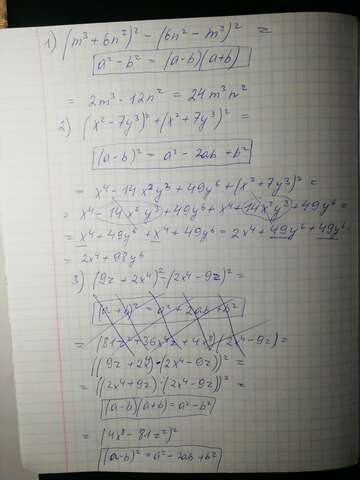 1) (m³+6n²)² − (6n² − m³)² =
a² − b² = (a−b)(a+b)
= 2m³ · 12n² = 24m³n²
2) (x² − 7y³)² + (x² + 7y³)² =
(a−b)² = a² − 2ab + b²
= x⁴ − 14x²y³ + 49y⁶ + (x² + 7y³)² =
= x⁴ − 14x²y³ + 49y⁶ + x⁴ + 14x²y³ + 49y⁶ =
= x⁴ + 49y⁶ + x⁴ + 49y⁶ = 2x⁴ + 49y⁶ + 49y⁶ =
= 2x⁴ + 98y⁶
3) (9z + 2x⁴)² · (2x⁴ − 9z)² =
(a+b)² = a² + 2ab + b²
= (81z² + 36x⁴z + 4x⁸)(2x⁴ − 9z) =
= ((2x⁴ + 9z) · (2x⁴ − 9z))² =
(a−b)(a+b) = a² − b²
= (4x⁸ − 81z²)²
(a−b)² = a² − 2ab + b²